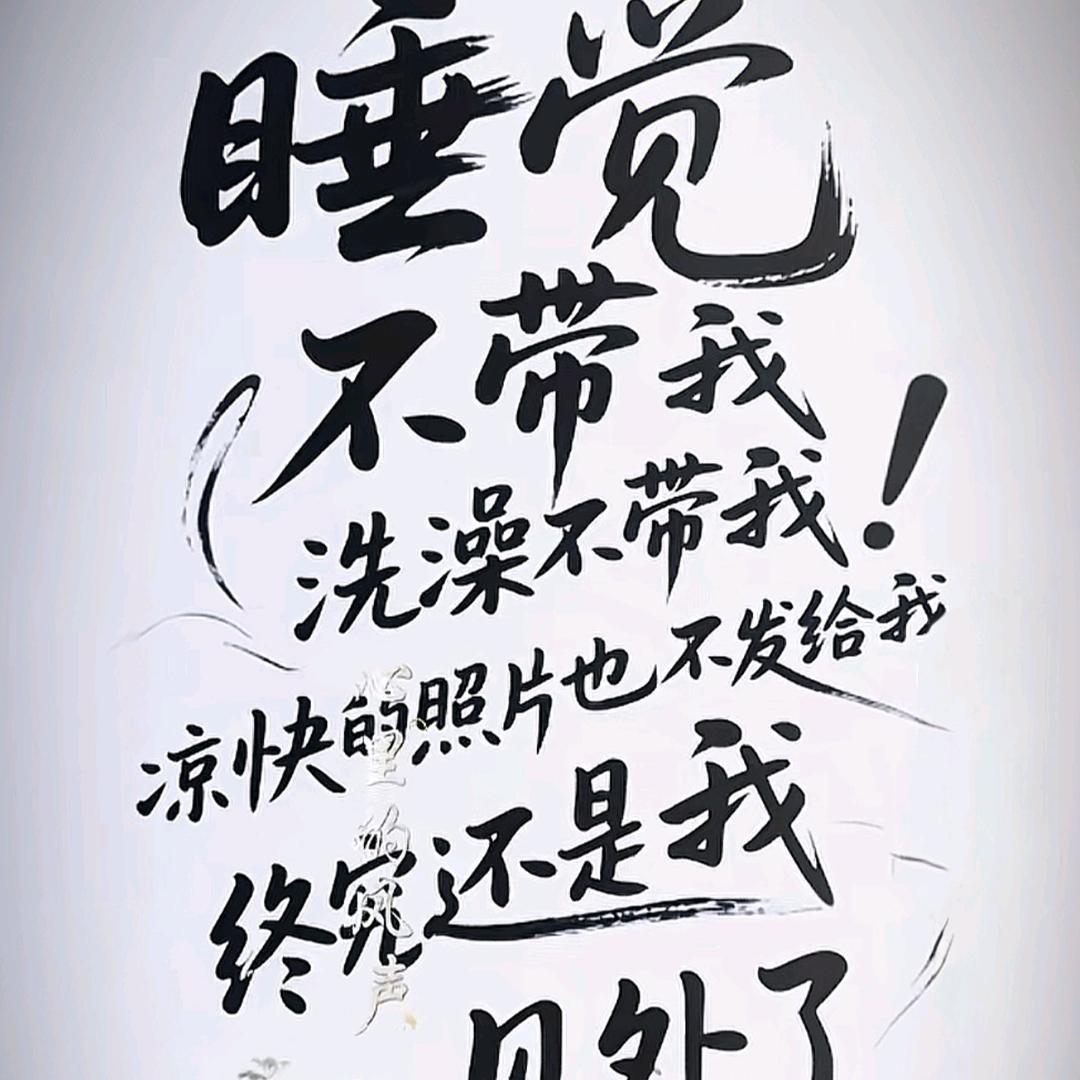 睡觉
不带我
洗澡不带我！
凉快的照片也不发给我
终究还是我
见外了
心里的风声